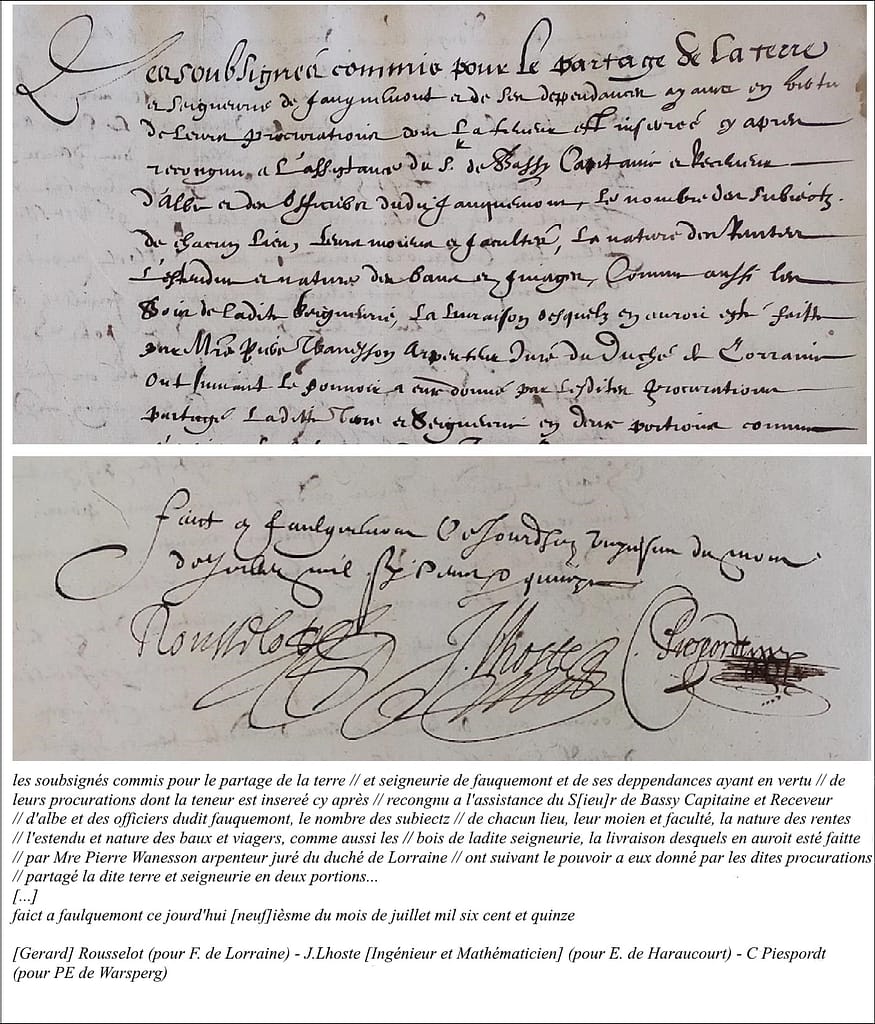 Les soubsignéz commis pour le partage de la terre
et seigneurie de fauquemont et de ses dependances ayants en vertu
de leurs procurations dont la teneur est insereé cy apres
recongnu a l'assistance du Sr. de Bassy Capitaine et Receveur
d'albe et des officiers dudit fauquemont, le nombre des subiectz
de chacun lieu, leurs moiens et facultéz, la nature des Rentes
l'estendue et nature des baux et
Comme aussi les
bois de ladite seigneurie, la livraison desquelz en auroit esté faitte
par Mre Arpenteur Juré du Duché de Lorraine
Ont suivant le pouvoir a eux donné par lesdites procurations
partagé ladite Terre et Seigneurie en deux portions comme
faict a faulquemont Ce jourdhuy du mois
de Juillet mil six cent quinze
Rousselot J. Lhoste C Piespordt
les soubsignés commis pour le partage de la terre // et seigneurie de fauquemont et de ses deppendances ayant en vertu // de
leurs procurations dont la teneur est insereé cy après // recongnu a l'assistance du S[ieu]r de Bassy Capitaine et Receveur
// d'albe et des officiers dudit fauquemont, le nombre des subiectz // de chacun lieu, leur moien et faculté, la nature des rentes
// l'estendu et nature des baux et viagers, comme aussi les // bois de ladite seigneurie, la livraison desquels en auroit esté faitte
// par Mre Pierre Wanesson arpenteur juré du duché de Lorraine // ont suivant le pouvoir a eux donné par les dites procurations
// partagé la dite terre et seigneurie en deux portions...
[...]
faict a faulquemont ce jourd'hui [neuf]ièsme du mois de juillet mil six cent et quinze
[Gerard] Rousselot (pour F. de Lorraine) - J.Lhoste [Ingénieur et Mathématicien] (pour E. de Haraucourt) - C Piespordt
(pour PE de Warsperg)